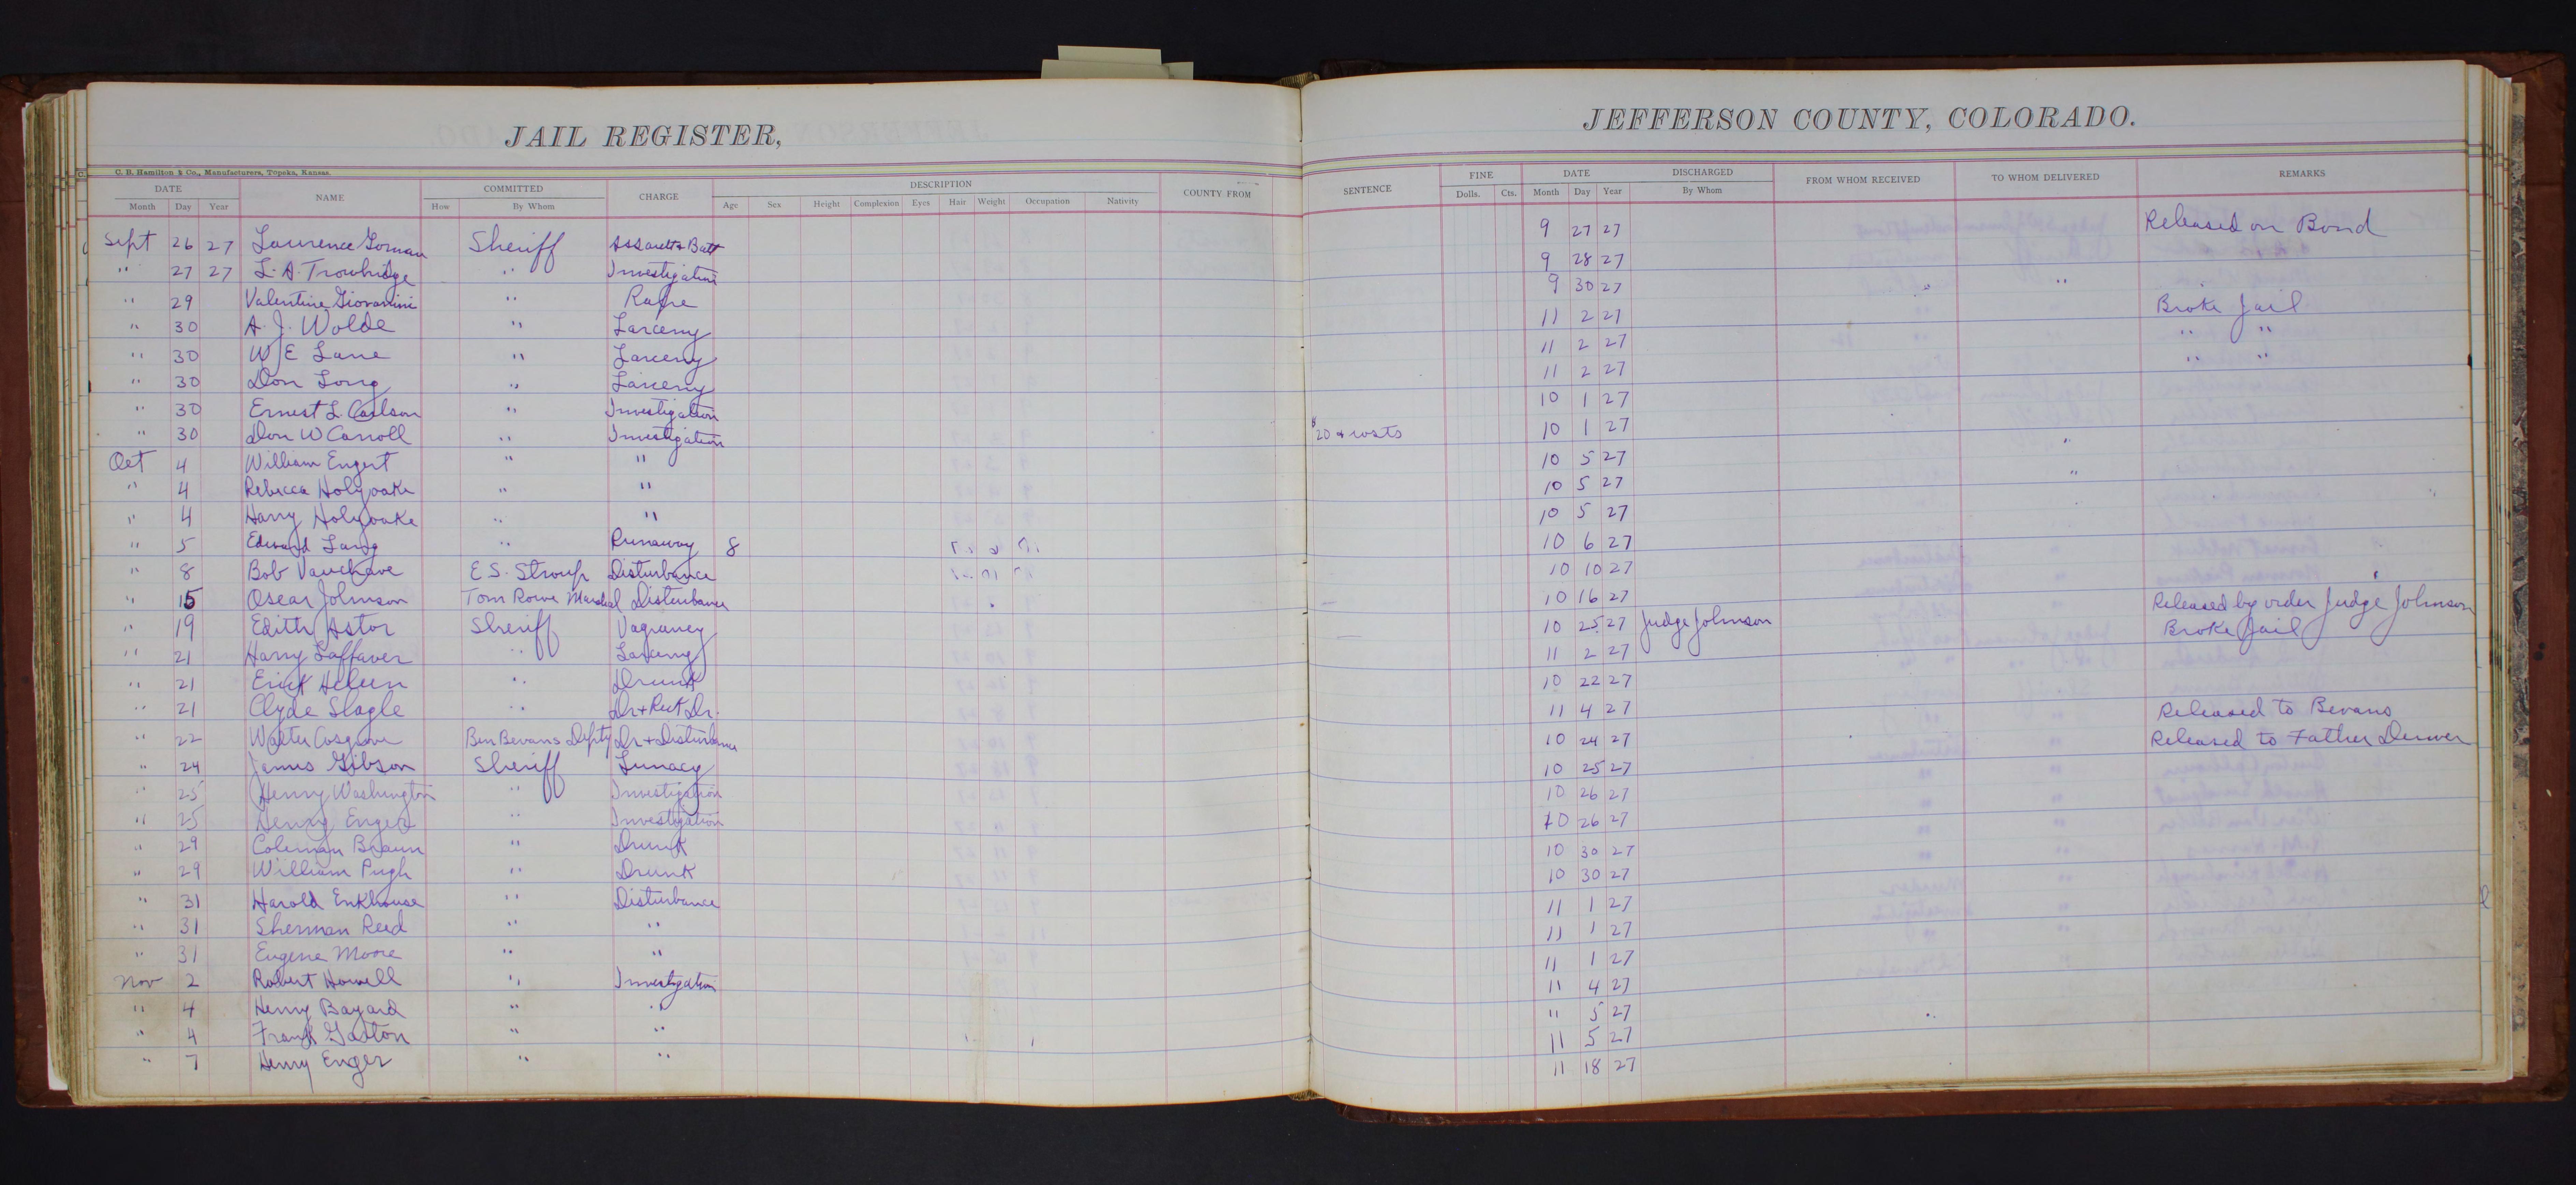 JAIL REGISTER,
C. B. Hamilton & Co., Manufacturers, Topeka, Kansas.
DATE NAME COMMITTED CHARGE DESCRIPTION COUNTY FROM
Month Day Year How By Whom Age Sex Height Complexion Eyes Hair Weight Occupation Nativity
Sept 26 27 Laurence Gorman Sheriff Assault & Batt
" 27 27 L. A. Trowbridge " Investigation
" 29 Valentine Giovannini " Rape
" 30 A. J. Wolde " Larceny
" 30 W E Lane " Larceny
" 30 Don Long " Larceny
" 30 Ernest L. Carlson " Investigation
" 30 Don W Carroll " Investigation
Oct 4 William Engert " "
" 4 Rebecca Holyoake " "
" 4 Harry Holyoake " "
" 5 Edward Lang " Runaway 8
" 8 Bob Vanchave E S. Stroup Disturbance
" 15 Oscar Johnson Tom Rowe Marshal Disturbance
" 19 Edith Astor Sheriff Vagrancy
" 21 Harry Laffaver " Larceny
" 21 Erick " Drunk
" 21 Clyde Slagle " Dr + Reck Dr.
" 22 Walter Cosgrove Ben Bevans Depty Dr + Disturbance
" 24 James Gibson Sheriff Lunacy
" 25 Henry Washington " Investigation
" 25 Henry Enger " Investigation
" 29 Coleman Braun " Drunk
" 29 William Pugh " Drunk
" 31 Harold Enkhouse " Disturbance
" 31 Sherman Reed " "
" 31 Eugene Moore " "
Nov 2 Robert Howell " Investigation
" 4 Henry Bayard " "
" 4 Frank Gaston " "
" 7 Henry Enger " "
JEFFERSON COUNTY, COLORADO.
SENTENCE FINE DATE DISCHARGED FROM WHOM RECEIVED TO WHOM DELIVERED REMARKS
Dolls. Cts. Month Day Year By Whom
9 27 27 Released on Bond
9 28 27
9 30 27 "
11 2 27 Broke Jail
11 2 27 " "
11 2 27 " "
10 1 27
$20 & costs 10 1 27
10 5 27
10 5 27
10 5 27
10 6 27
10 10 27
10 16 27
10 25 27 Judge Johnson Released by order Judge Johnson
11 2 27 Broke Jail
10 22 27
11 4 27 Released to Bevans
10 24 27 Released to Father Denver
10 25 27
10 26 27
10 26 27
10 30 27
10 30 27
11 1 27
11 1 27
11 1 27
11 4 27
" 5 27
11 5 27
11 18 27